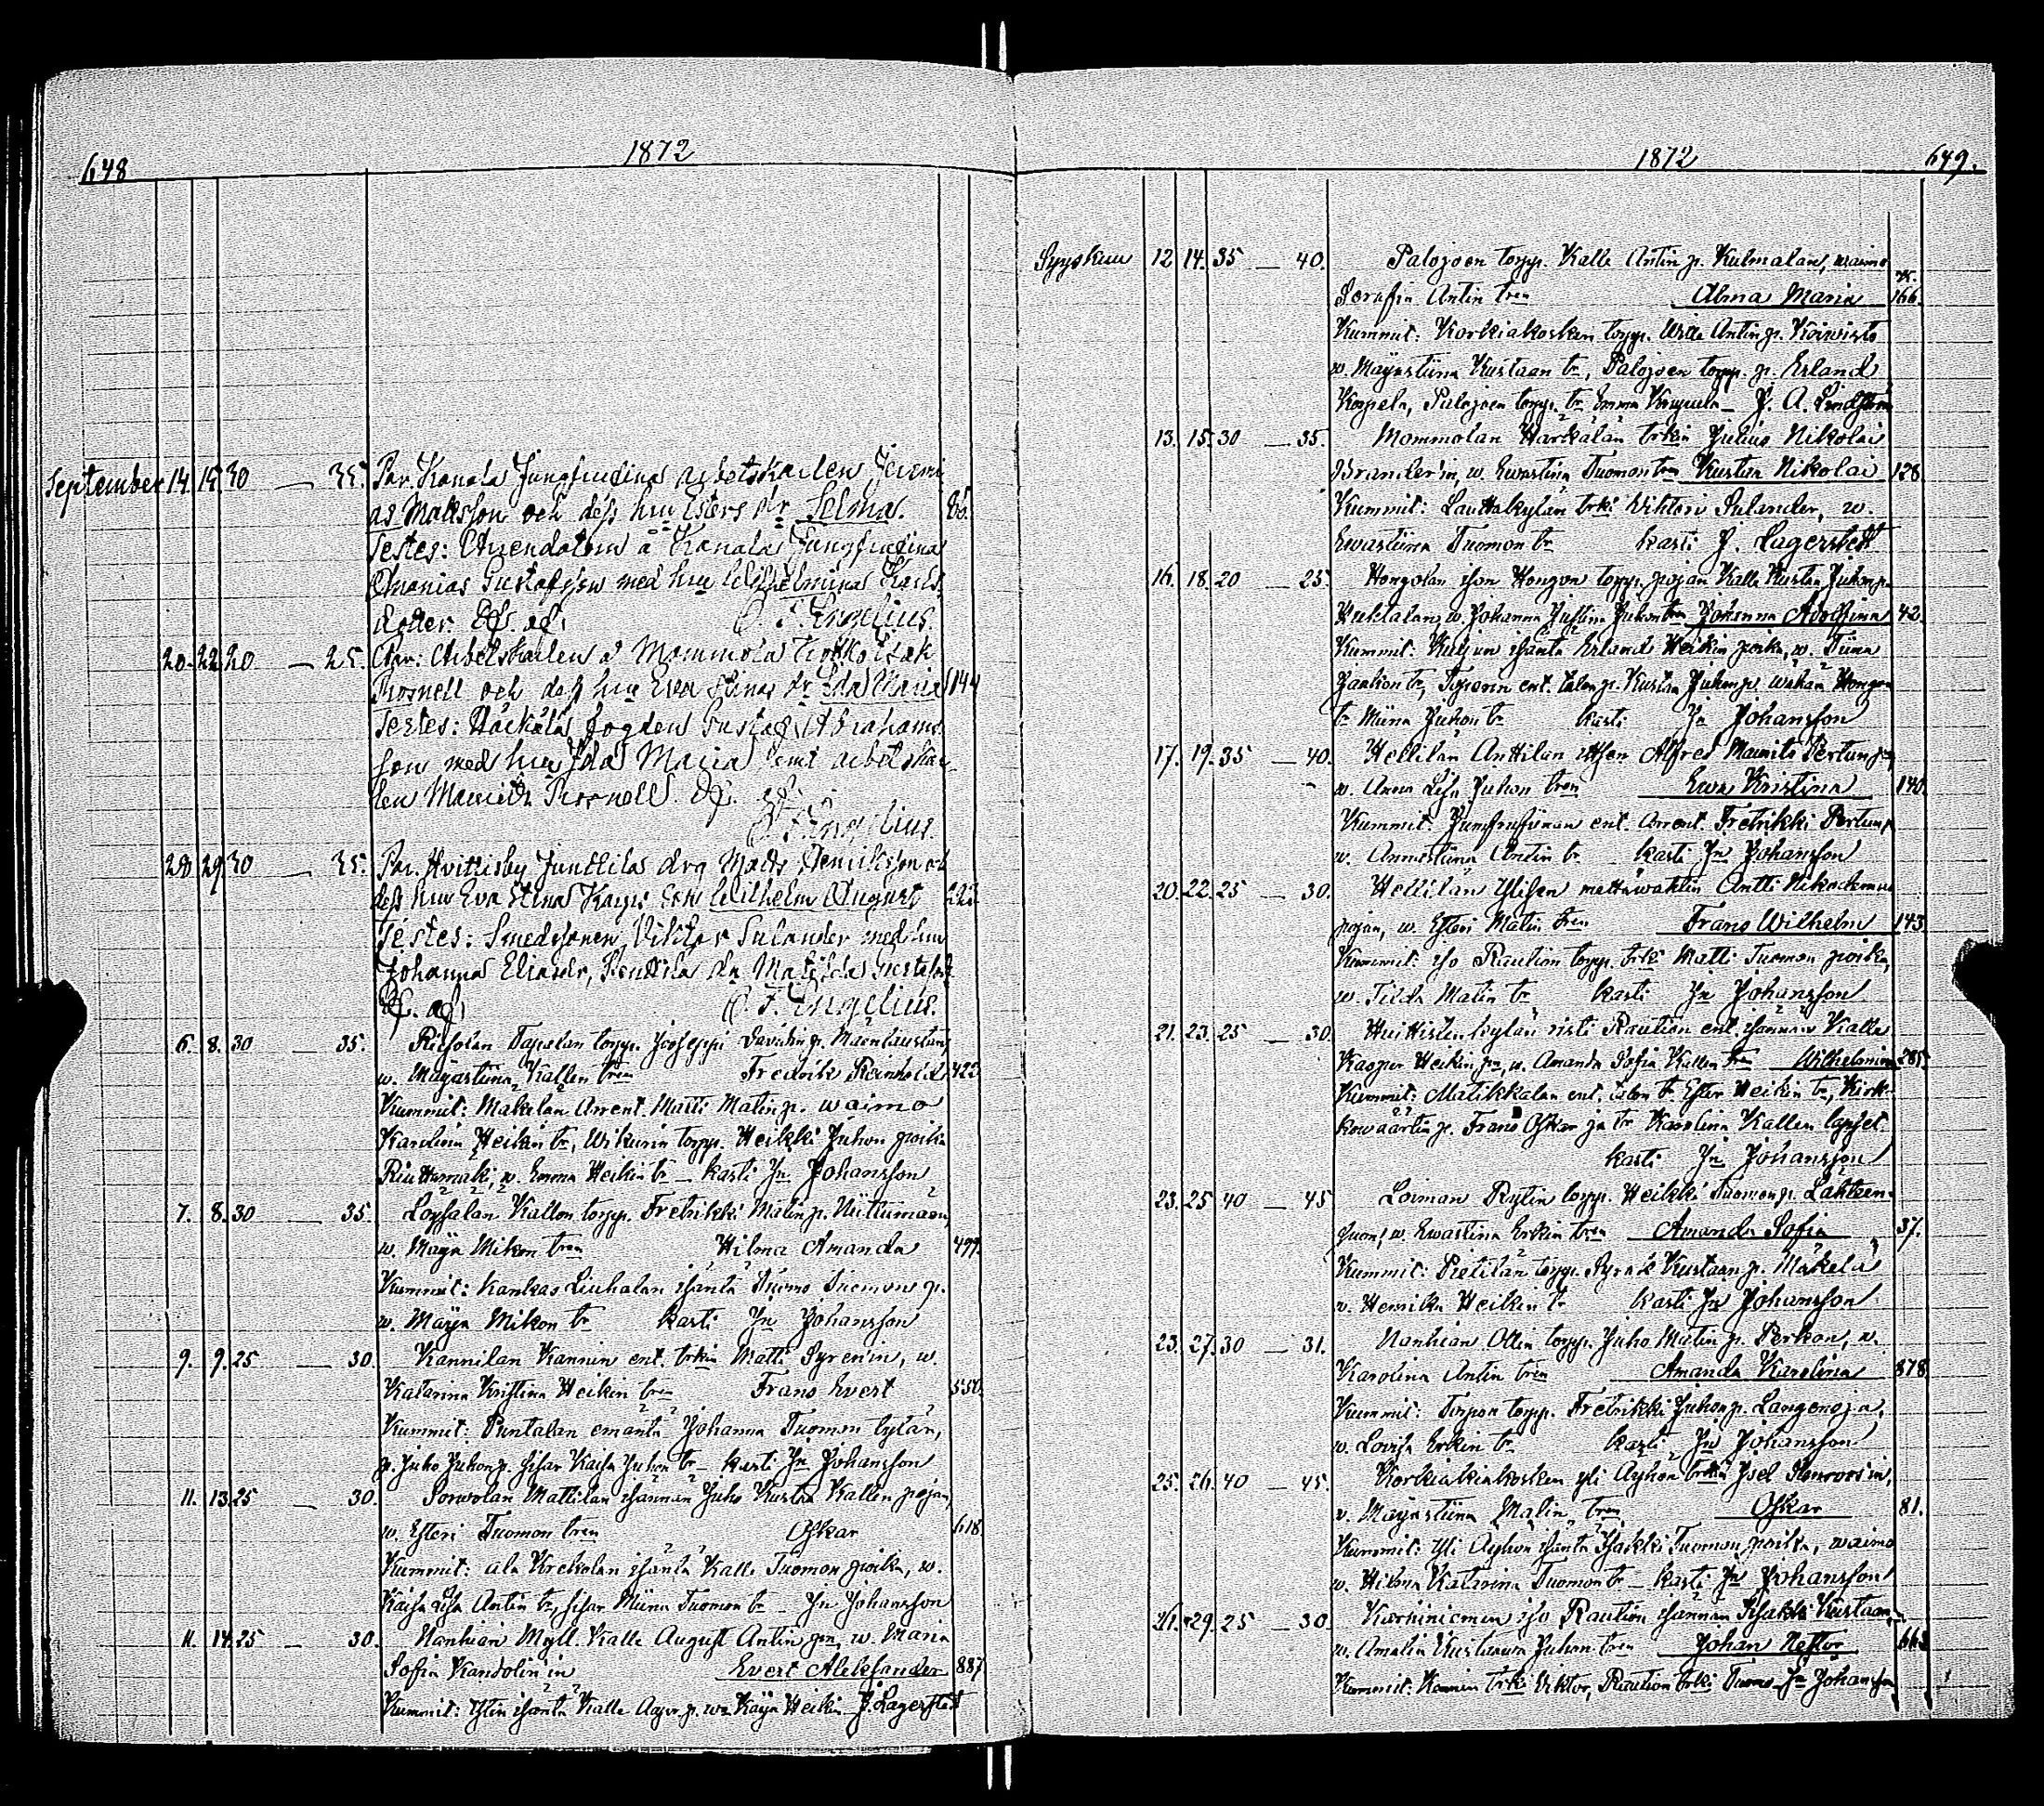 648
1872
September 14. 15. 30 — 35. Par. Karala Jungfrudina arbetskarlen Jeremi
as Mattsson och dess hru Esters dr Selma. 86.
Testes: Arrendatorn å Karala Jungfrudina
Ananias Gustafsson med hru Wilhelmina Karls
doter. Df. af. C. F. Engelius.
20. 22. 20. — 25. Par: Arbetskarlen å Mommola Isak
Rosnell och dess hru Eva Stina dr Ida Maria 144
Testes: Häckälä fogden Gustaf Abrahams
son med hru Ida Maria samt arbetskar
len Maurits Rosnell. Df. af
C. F. Engelius.
28. 29. 30 35. Par. Hvittisby Junttilas drg Matts Henriksson och
dess hru Eva Stina Kasps son Wilhelm August 223
Testes: Smedssonen Viktor Sulander med hru
Johanna Eliasdr, Penttila da Matilda Gustafsdr
Df. af C. F. Engelius.
6. 8. 30 — 35. Riesolan Tapolan torpp. Joseppi Davidin p.
w. Mayastiina Kallen tren Fredrik Reinhold 423
Kummit: Makelan Arrent. Matti Matin p. waimo
Karoliina Heikin tr, Wikurin torpp. Heikki Juhon poika
Riuttamaki, w. Emma Heikin tr — kasti Jn Johansson
7. 8. 30 — 35. Loysalan Kallon torpp. Fretrikki Matin p. Niittumaan,
w. Maya Mikon tren Hilma Amanda 499.
Kummit: Kankas Liuhalan isäntä Tuomo Tuomon p.
w. Maya Mikon tr kasti Jn Johansson
9. 9. 25 — 30. Kannilan Kannin ent. trkin Matti Syrenin, w.
Katarina Kristina Heikin tren Frans Evert 550.
Kummit: Puntalan emäntä Johanna Tuomon tytär,
p. Juho Juhon p. sisar Kaisa Juhon tr — kasti Jn Johansson
11. 13. 25 — 30. Sorwolan Mattilan isännän Juho Kustaa Kallen pojan,
w. Esteri Tuomon tren Oskar 618.
Kummit: ala Krekolan isäntä Kalle Tuomon poika, w.
Kaisa Lisa Antin tr, sisar Miina Tuomon tr — Jn Johansson
11. 14. 25 — 30. Nanhian Myll. Kalle August Antin pn, w. Maria
Sofia Kandolin'in Evert Aleksander 887
Kummit: Ylin isäntä Kalle p. wa Kaya Heikin J. Lagerstedt
1872 649.
Syyskuu 12 14. 35 — 40. Palojoen torpp. Kalle Antin p. Kulmalan, waimo
Serafia Antin tren Alma Maria 166.
Kummit: Korkiakosken torpp. Wille Antin p. Koiwisto
w. Mayastiina Kustaan tr, Palojoen torpp. p. Erland
Korpela, Palojoen torpp. tr Emma — J. A. Lindström
13. 15. 30 — 35. Mommolan Harkälän trkin Julius Nikolai
Brander'in, w. Ewastiina Tuomon tren Kustaa Nikolai 128.
Kummit: Lauttakylän trki Wihtori Sulander, w.
Ewastiina Tuomon tr kasti J. Lagerstedt
16. 18. 20 — 25. Hongolan ison Hongon torpp. pojan Kalle Kustaa Juhon pn
w. Johanna Juhon tren Johanna Adolfiina 42.
Kummit: isäntä Erland Heikin poika, w. Tiina
Jaakon tr, ent. talon p. Kustaa Juhon p. wähän Hongon
tr Miina Juhon tr kasti Jn Johansson
17. 19. 35 — 40. Hellilän Anttilan itsen Alfred Maurits Pertun pn,
w. Anna Lisa Juhon tren Ewa Kristina 140.
Kummit: ent. Arrent. Fretrikki Pertun p
w. Annastiina Antin tr — kasti Jn Johansson
20. 22. 25 — 30. Hellilän mettäwahtin Antti Nikodemus
pojan, w. Esteri Matin tren Frans Wilhelm 143.
Kummit: iso Raution torpp. trki Matti Tuomon poika,
w. Tilda Matin tr kasti Jn Johansson
21. 23. 25 — 30. Huittisten kylän risti Raution ent. isännän Kalle
Kasper Heikin pn, w. Amanda Sofia Kallen tren Wilhelmina 285.
Kummit: Matikkalan ent. talon tr Ester Heikin tr, Kirk-
kowäärtin p. Frans Oskar ja tr Karolina Kallen lapset.
kasti Jn Johansson
23. 25. 40 — 45 Loiman Rytin torpp. Heikki Tuomon p. Lähteen-
suon, w. Ewastina Erkin tren Amanda Sofia 37.
Kummit: Pietilän torpp. Kustaan p. Mäkelä
w. Henrika Heikin tr kasti Jn Johansson
23. 27. 30 — 31. Nanhian Ollin torpp. Juho Matin p. Perkon, w.
Karolina Antin tren Amanda Karolina 878
Kummit: Torpon torpp. Fretrikki Juhon p. Langenoja,
w. Lovisa Erkin tr kasti Jn Johansson
25. 26. 40 — 45. Korkiakosken yli Äyhön trkin
w. Mayastiina Matin tren Oskar 81.
Kummit: yli Äyhön isäntä Isakki Tuomon poika, waimo
w. Hilma Katarina Tuomon tr — kasti Jn Johansson
26. 29. 25 — 30. Karhiniemen iso Raution isännän Isakki Kustaan,
w. Amalia Kustaawa Juhon tren Johan Nestor 663
Kummit: Kannin trki Viktor, Raution trki Tuomo Jn Johansson